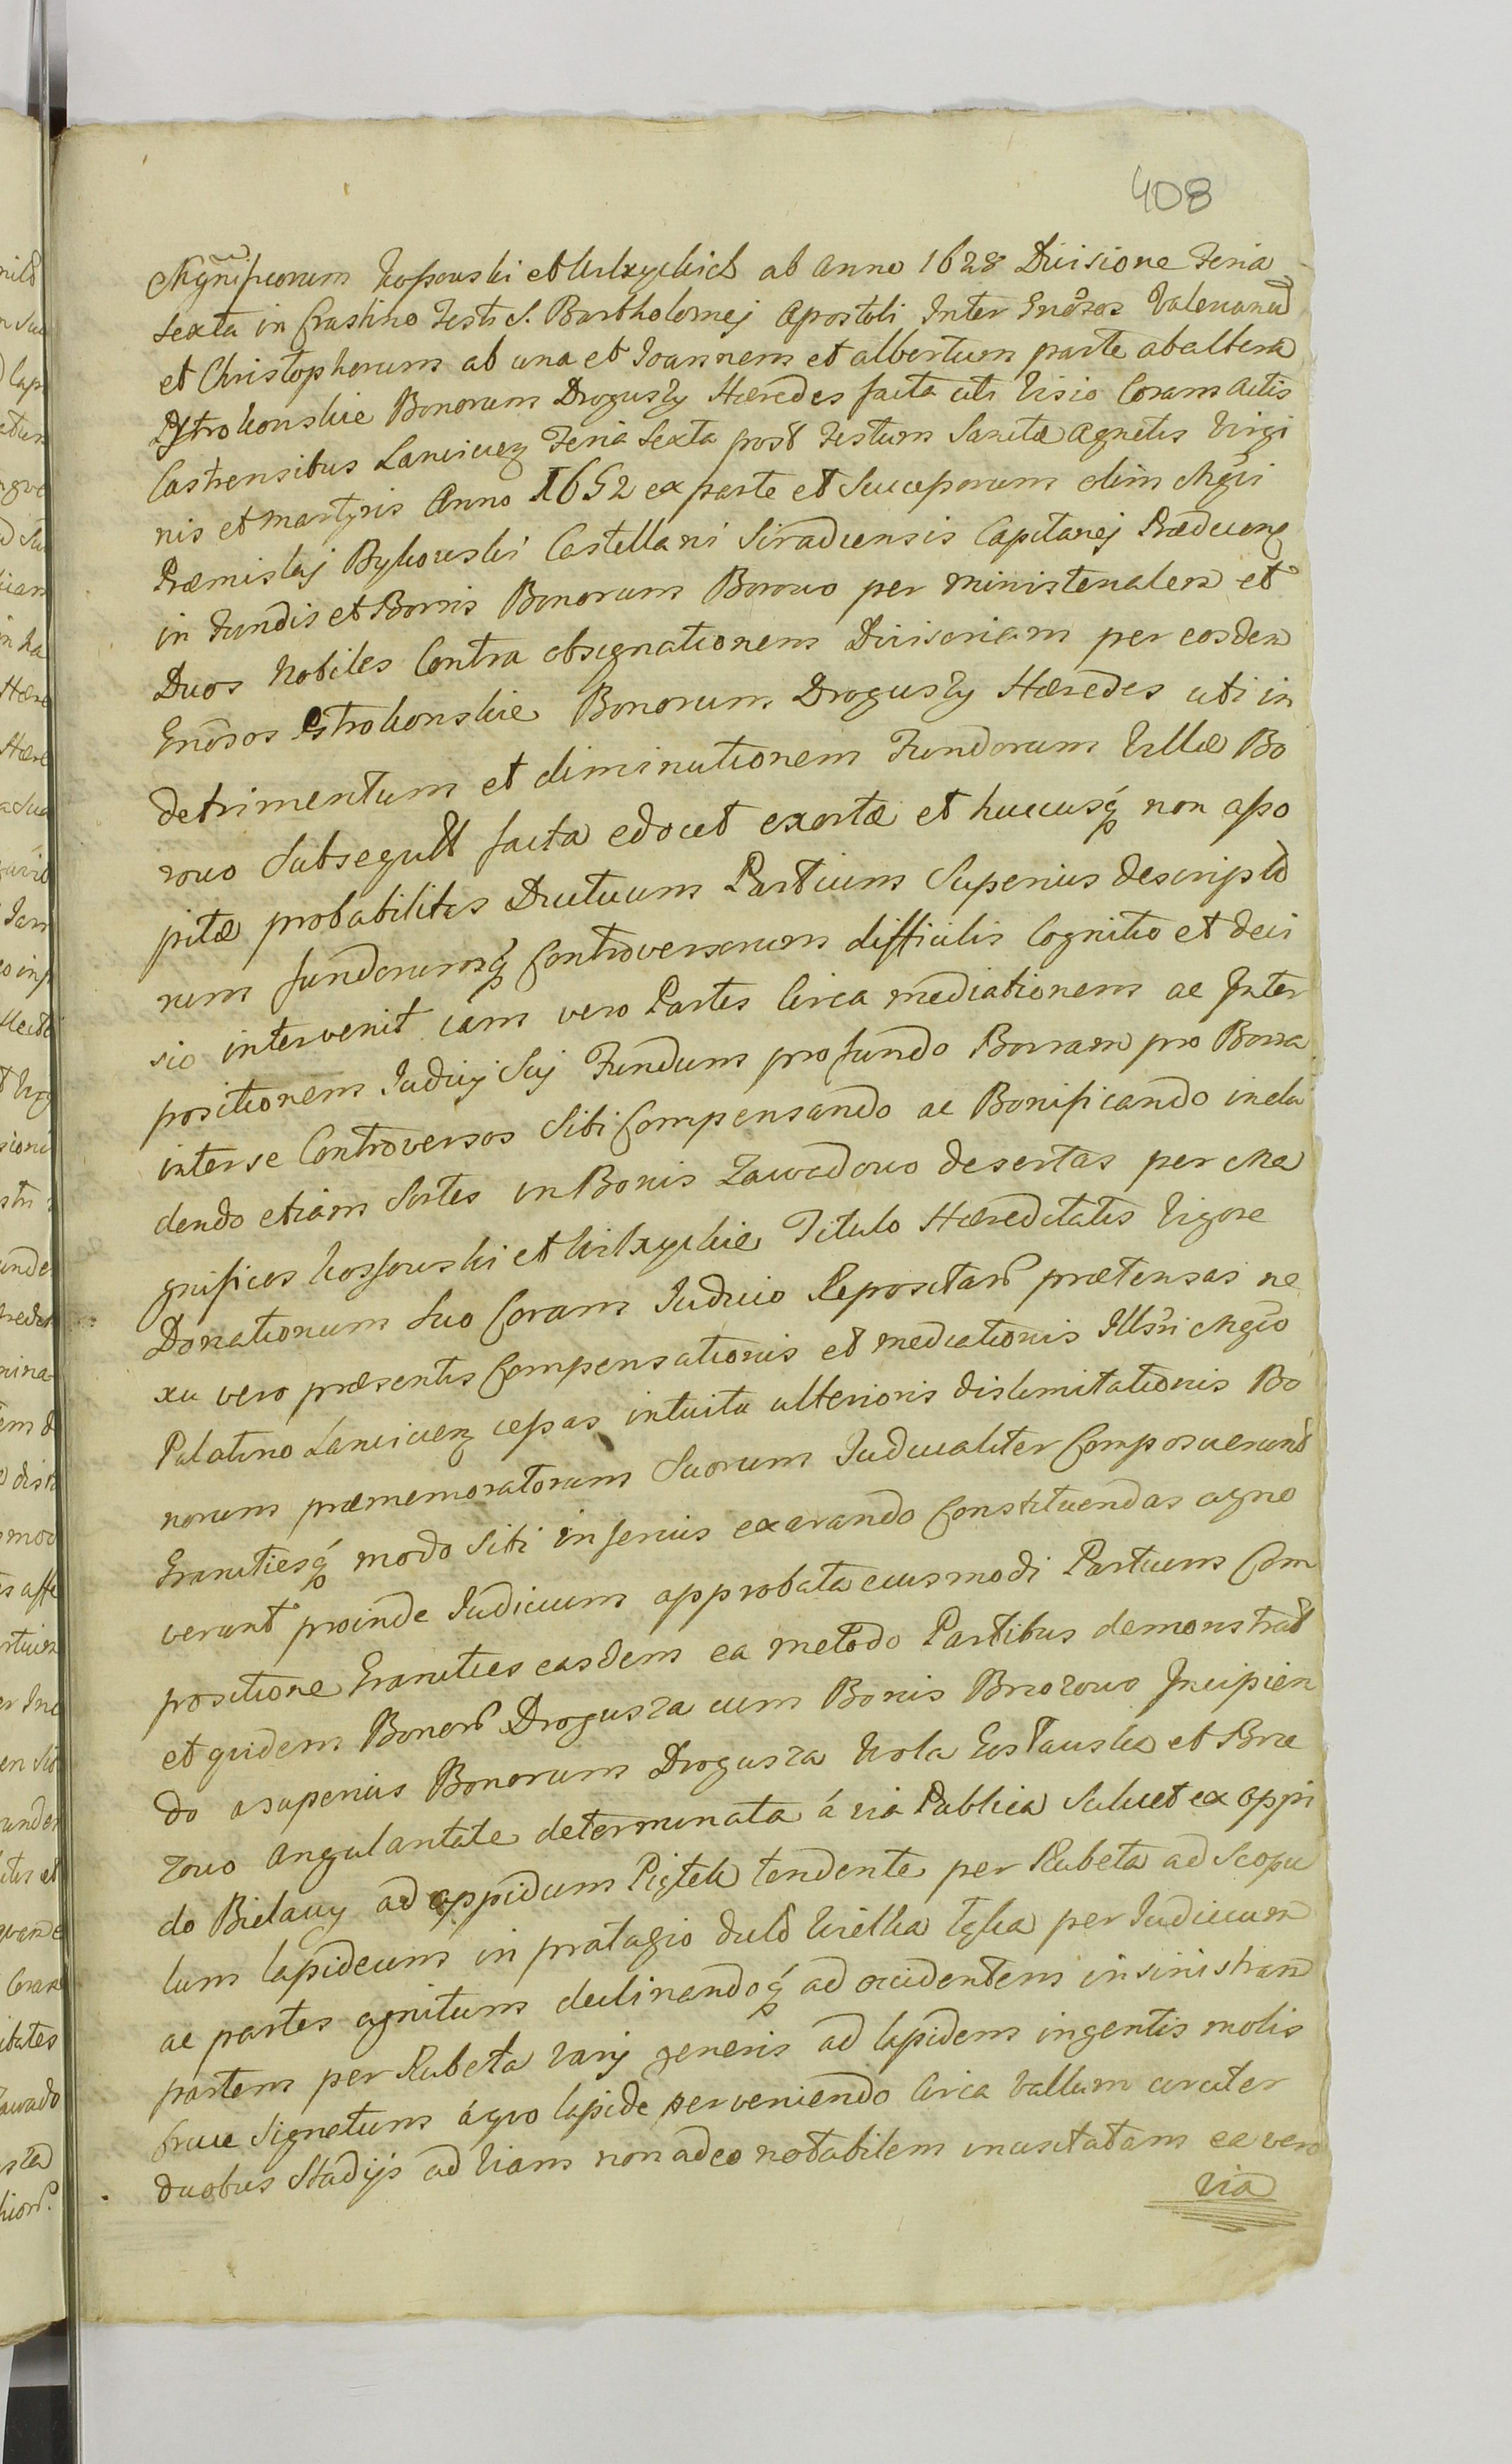 408
Mgnificorum Kossowski et Wilxyckich ab Anno 1628 Divisione Feria
sexta in Crastino Festi S. Bartholomej Apostoli Inter Gnosos Valerianu
et Christophorum ab una et Joannem et albertum parte ab altera
Pstrokonskie Bonorum Droguszy Hæredes facta uti Visio Coram Actis
Castrensibus Lanciciens Feria Sexta post Festum Sanctæ Agnetis Virgi
nis et martyris Anno 1652 ex parte et Successorum olim Mgci
Præmislaj Bykowski Castellani Siradiensis Capitanej Prædecens
in Fundis et Borris Bonorum Borowo per ministerialem et
Duos Nobiles Contra obsignationem Divisoriam per eosdem
Gnosos Pstrokonskie Bonorum Droguszy Hæredes uti in
detrimentum et diminutionem Fundorum Villæ Bo
rowo Subsequt facta edocet exortæ et hucusq non asso
pitæ probabilites Ductuum Partium Superius descripto
rum fundorumq Controversorum difficilis Cognitio et deci
sio intervenit iam vero Partes Circa mediationem ac Inter
positionem Judicij Sui Fundum pro fundo Borram pro Borra
inter se Controversos Sibi Compensando ac Bonificando inclu
dendo etiam Sortes in Bonis Zawadowo desertas per Ma
gnificos Kossowski et Wilxyckie Titulo Hæreditatis Vigore
Donationum Suo Coram Judicio Repositar prætensas ne
xu vero præsentis Compensationis et mediationis Illsri Mgco
Palatino Lanciciens cessas intuitu ulterioris dislimitationis Bo
norum præmemoratorum Suorum Judicialiter Composuerunt
Granitiesq modo Sibi inferius exarando Constituendas agno
verunt proinde Judicium approbata eiusmodi Partium Com
positione Granities easdem ea metodo Partibus demonstrat
et quidem Bonor Drogusza cum Bonis Brzozowo Incipien
do a superius Bonorum Drogusza Wola Gostawska et Brzo
zowo Angulantate determinata á via Publica Saluet ex oppi
do Bielawy ad oppidum Piątek tendente per Rubeta ad Scopu
lum lapideum in pratagio dicto Wielka Łąka per Judicium
ac partes agnitum declinandoq ad occidentem in sinistram
partem per Rubeta varij generis ad lapidem ingentis molis
Cruce Signatum á quo lapide perveniendo Circa Vallum circiter
duobus Stadijs ad Viam non adeo notabilem inusitatam ea vero
via